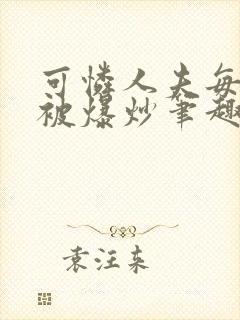 可怜人夫每
被爆炒笔趣
袁汪东